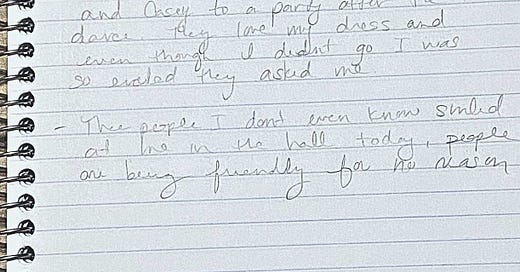 and Casey to a party after
dance they love my dress and
even though I didnt go I was
so excited they asked me.
- Three people I dont even know smiled
at me in the hall today, people
are being friendly for no reason